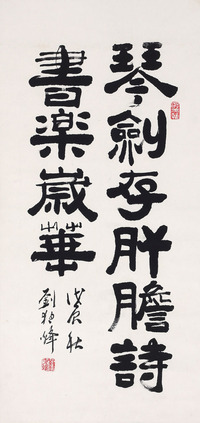 琴劍存肝膽詩
書楽歲華
戊辰秋
劉炳烽